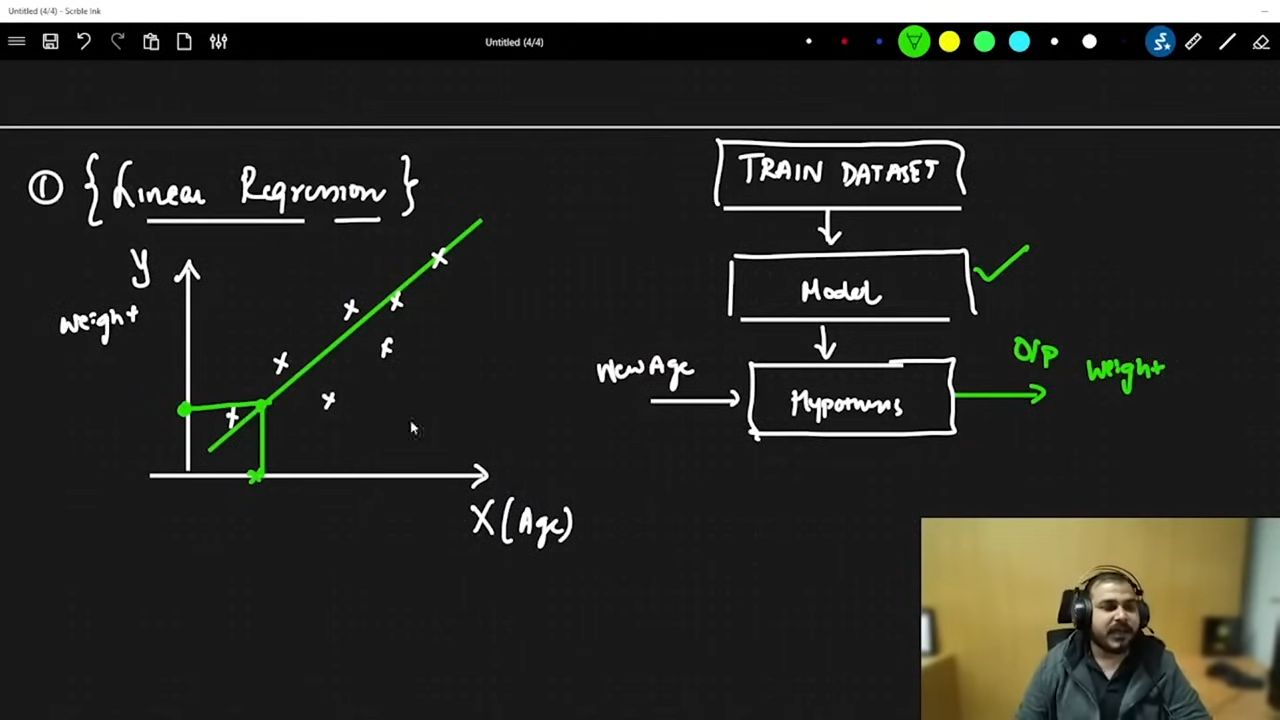 Untitled (4/4) - Scrble Ink
Untitled (4/4)
① { Linear Regression }
Y
Weight
X (Age)
TRAIN DATASET
Model
New Age
Hypothesis
O/P
Weight